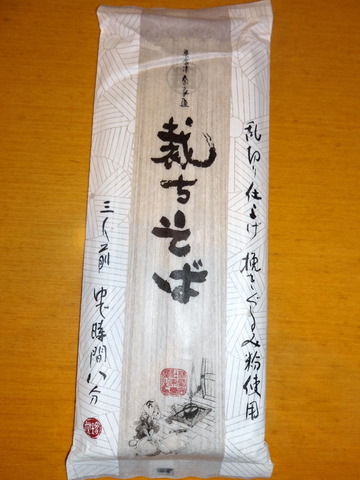 乱切り仕上げ 挽きぐるみ粉使用
裁ちそば
三人前 ゆで時間八分